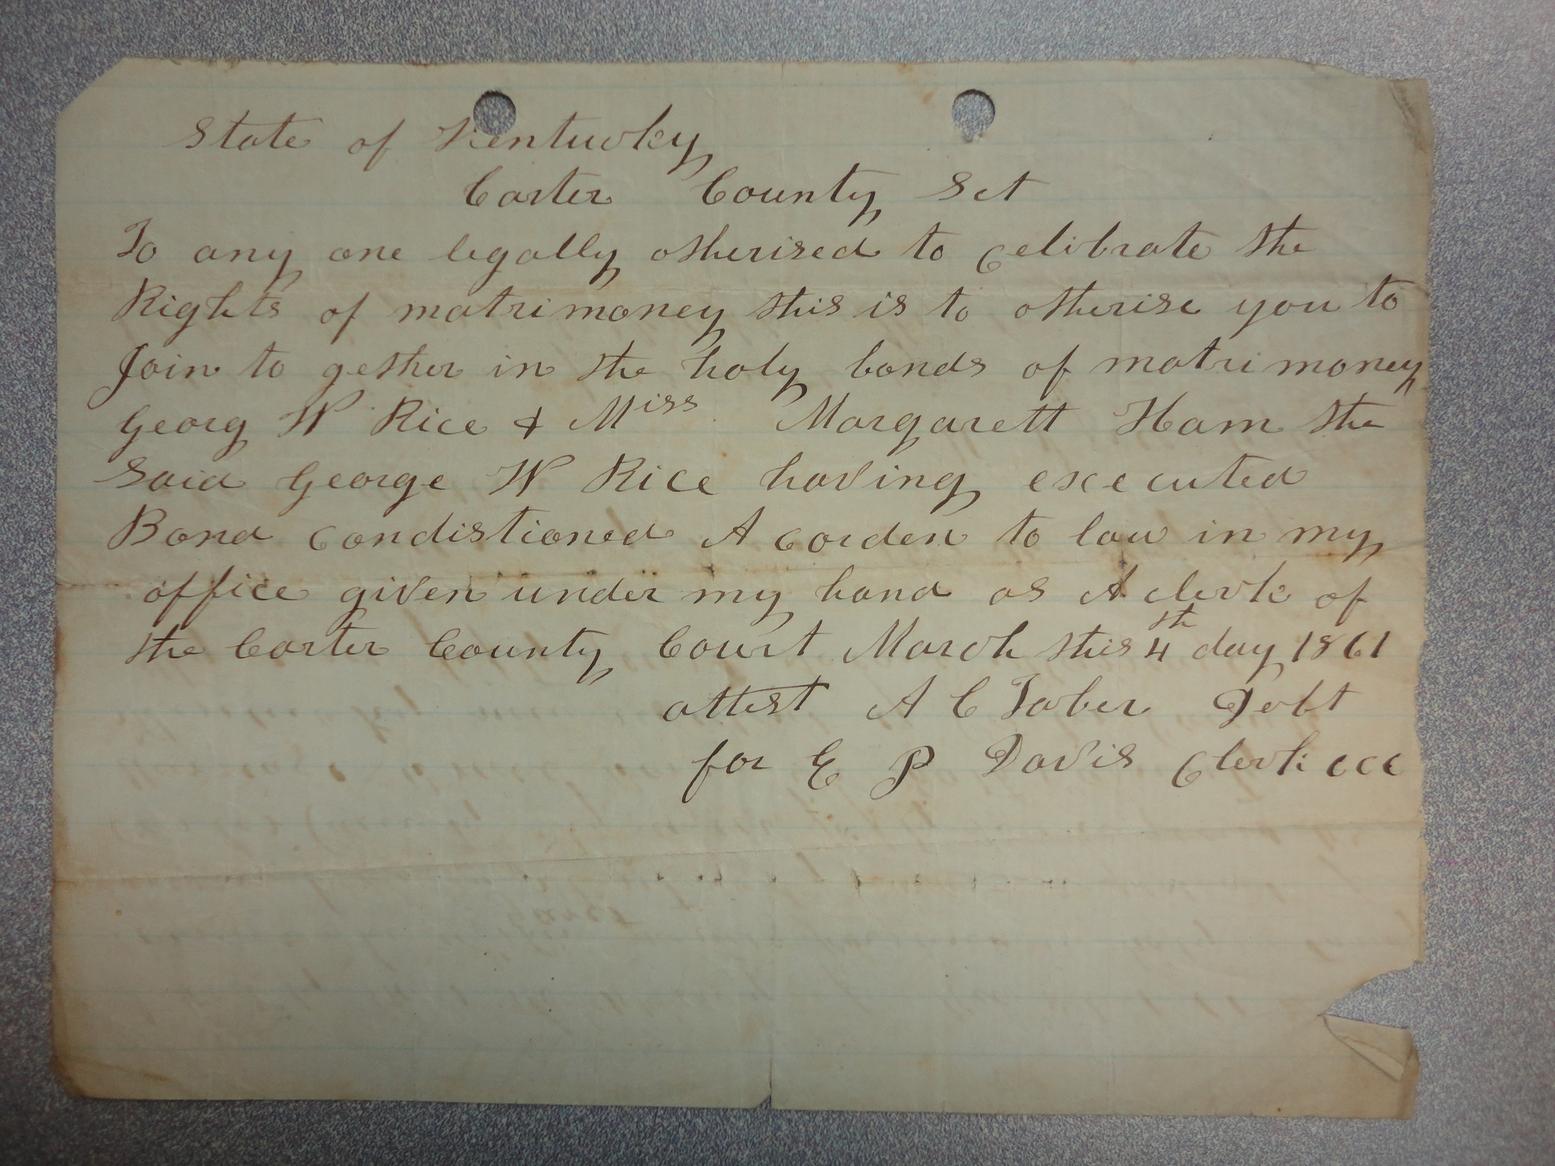 State of Kentucky
Carter County Sct
To any one legally otherised to celibrate the
Rights of matrimoney this is to otherise you to
Join to gether in the holy bonds of matrimoney
Georg W Rice & Miss Margarett Ham the
Said George W Rice having executed
Bond condistioned A corden to law in my
office given under my hand as A clerk of
the Carter County Court March this 4th day 1861
attest A C Taber Debt
for E P Davis Clerk CCC